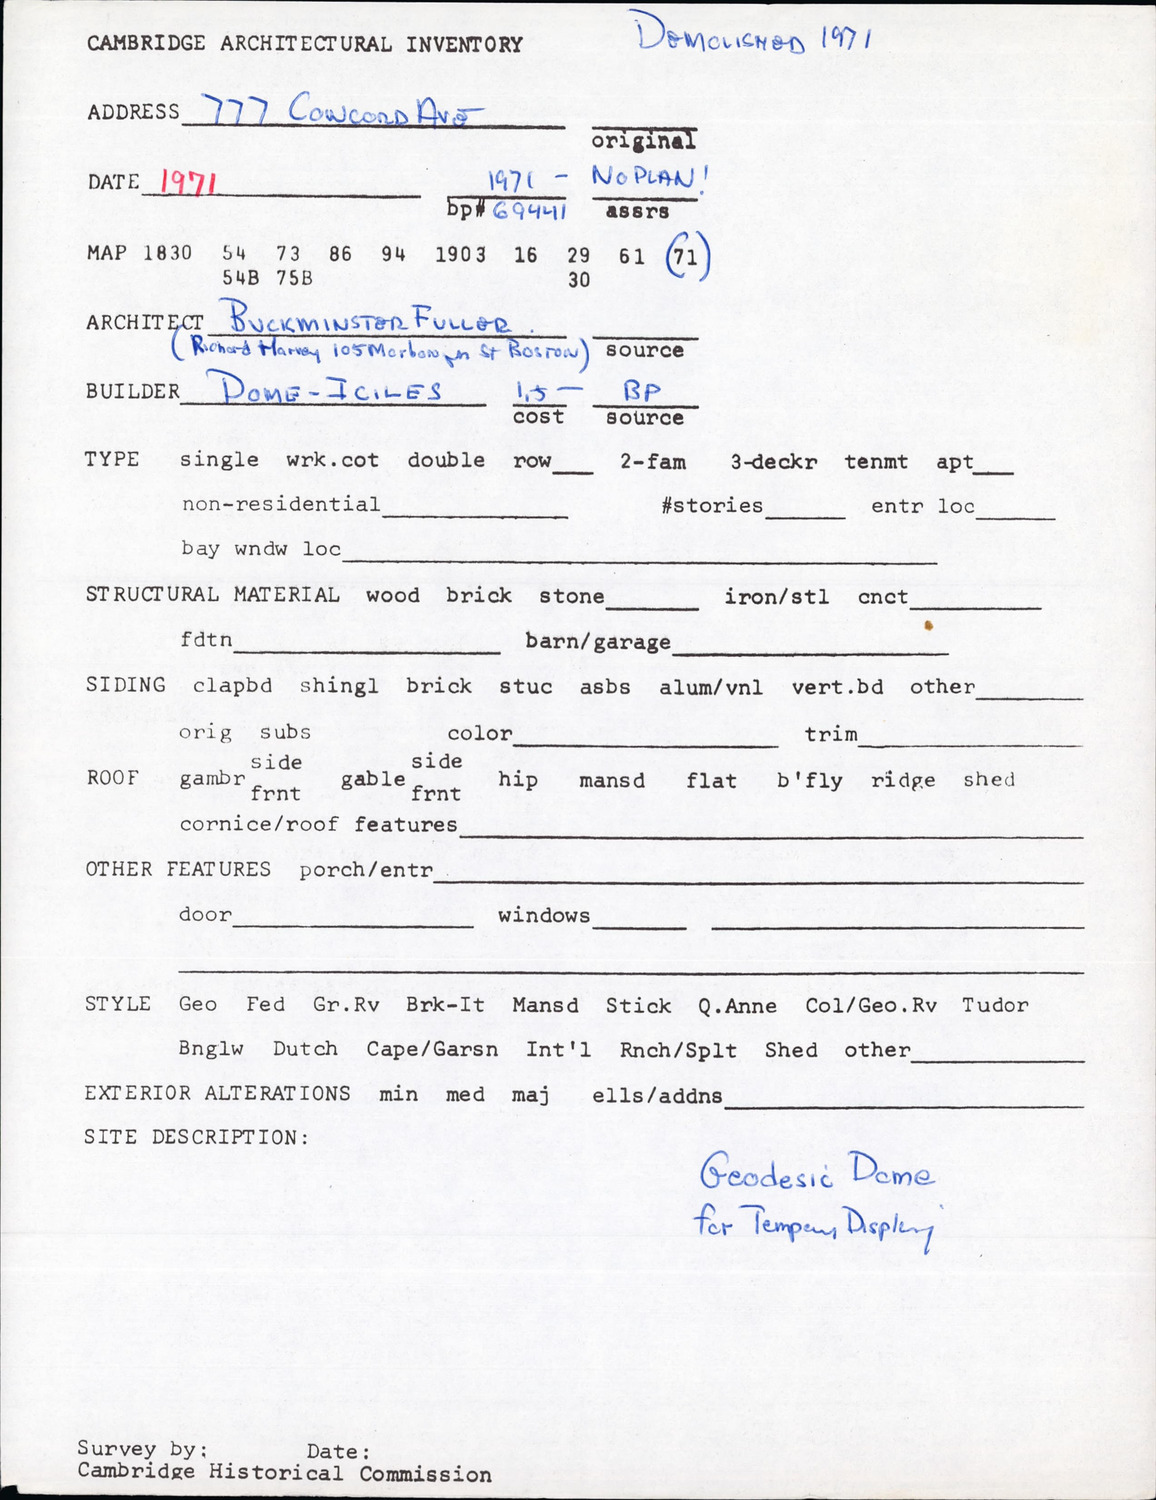 CAMBRIDGE ARCHITECTURAL INVENTORY DEMOLISHED 1971
ADDRESS 777 CONCORD AVE
original
DATE 1971 1971 - NO PLAN!
bp# 69441 assrs
MAP 1830 54 73 86 94 1903 16 29 61 (71)
54B 75B 30
ARCHITECT BUCKMINSTER FULLER.
(Richard Harvey 105 St BOSTON) source
BUILDER DOME-ICILES 1,5 — BP
cost source
TYPE single wrk.cot double row___ 2-fam 3-deckr tenmt apt___
non-residential #stories entr loc
bay wndw loc
STRUCTURAL MATERIAL wood brick stone iron/stl cnct
fdtn barn/garage
SIDING clapbd shingl brick stuc asbs alum/vnl vert.bd other
orig subs color trim
side side
ROOF gambr gable hip mansd flat b'fly ridge shed
frnt frnt
cornice/roof features
OTHER FEATURES porch/entr
door windows
STYLE Geo Fed Gr.Rv Brk-It Mansd Stick Q.Anne Col/Geo.Rv Tudor
Bnglw Dutch Cape/Garsn Int'l Rnch/Splt Shed other
EXTERIOR ALTERATIONS min med maj ells/addns
SITE DESCRIPTION:
Geodesic Dome
for Display
Survey by: Date:
Cambridge Historical Commission